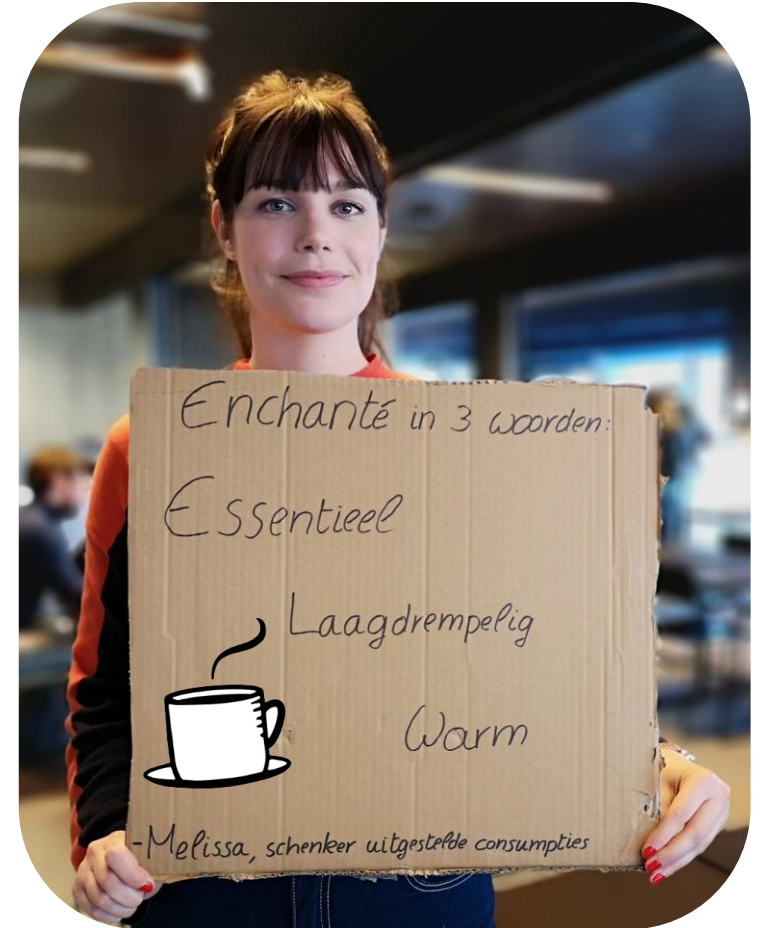 Enchanté in 3 woorden:
Essentieel
Laagdrempelig
Warm
-Melissa, schenker uitgestelde consumpties